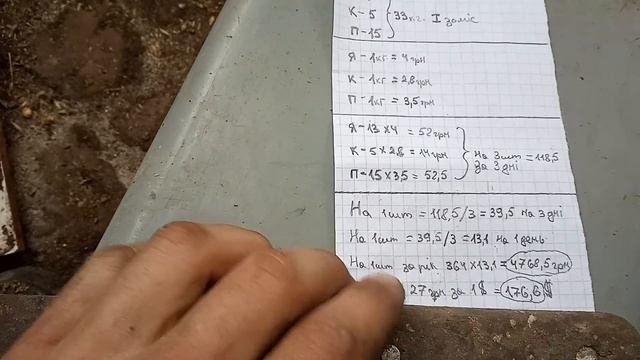 К-5 } 33 кг. I заміс
П-15
Я - 1кг = 4 грн
К - 1кг = 2,8 грн
П - 1кг = 3,5 грн
Я-13 х 4 = 52 грн
К-5 х 2,8 = 14 грн } На 3 шт = 118,5
за 3 дні
П-15 х 3,5 = 52,5
На 1 шт = 118,5/3 = 39,5 на 3 дні
На 1 шт = 39,5/3 = 13,1 на 1 день
На 1 шт за рік 364 х 13,1 = 4768,5 грн
27 грн за 1$ = 176,6$